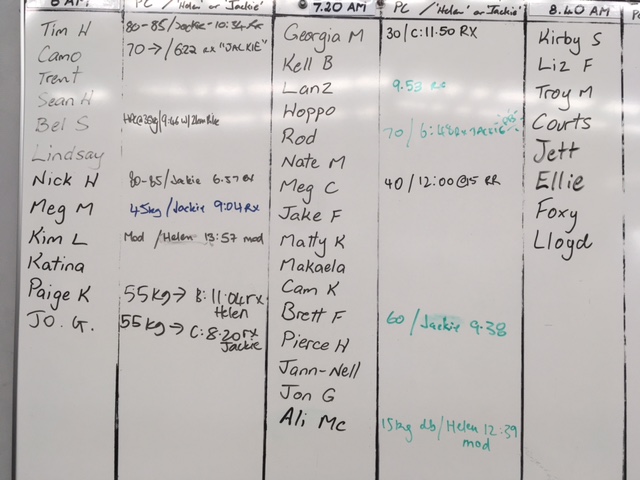 6 AM PC / 'Helen' or 'Jackie'
Tim H 80-85/Jackie - 10:34 RX
Camo 70 → / 622 rx "JACKIE"
Trent
Sean H
Bel S @35kg/9:46 W/
Lindsay
Nick H 80-85/Jackie 6.57 RX
Meg M 45kg/Jackie 9:04 RX
Kim L Mod /Helen 13:57 mod
Katina
Paige K 55kg → B: 11:04 rx
Helen
JO. G. 55kg → C: 8:20 rx
Jackie
7.20 AM PC / 'Helen' or 'Jackie'
Georgia M 30/C:11:50 RX
Kell B
Lanz 9.53 RX
Hoppo
Rod 70/6:48 RX JACKIE
Nate M
Meg C 40/12:00@15 RR
Jake F
Matty K
Makaela
Cam K
Brett F 60/Jackie 9:38
Pierce H
Jann-Nell
Jon G
Ali Mc 15kg db/Helen 12:39
mod
8.40 AM
Kirby S
Liz F
Troy M
Courts
Jett
Ellie
Foxy
Lloyd